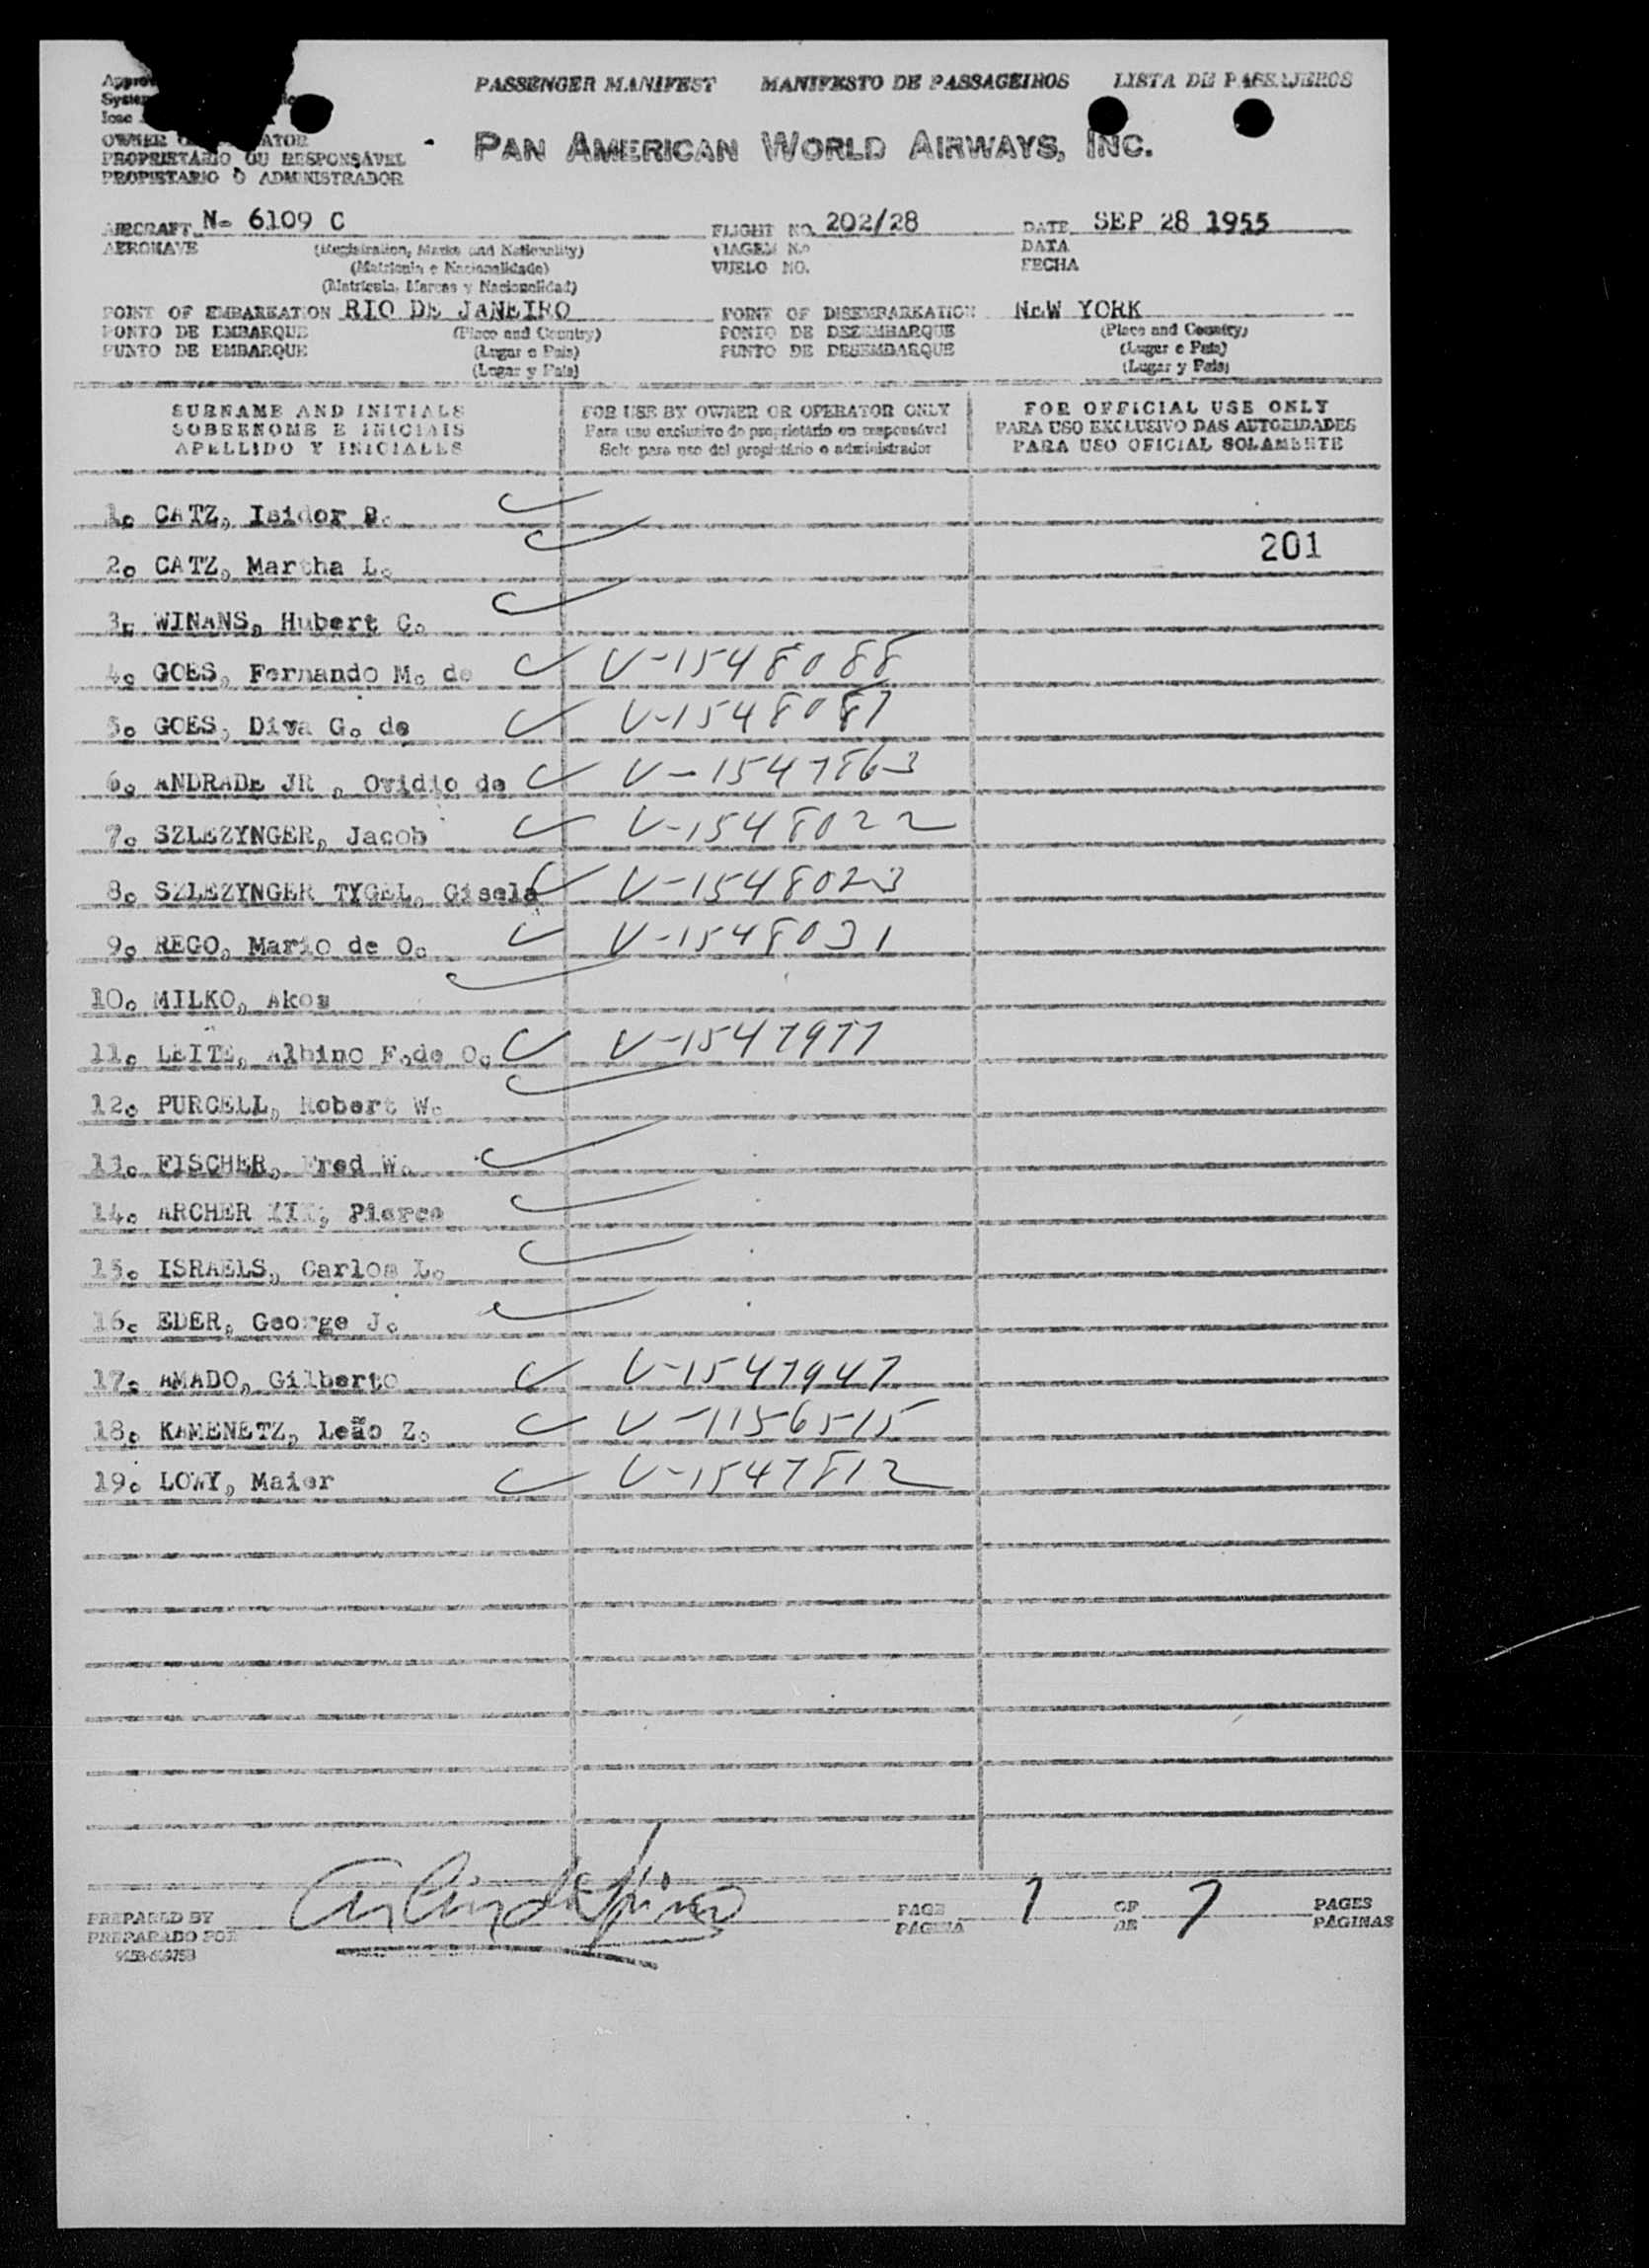 PASSENGER MANIFEST MANIFESTO DE PASSAGEIROS LISTA DE PASSAJEROS
OWNER
PROPRIETÁRIO OU RESPONSÁVEL
PROPIETARIO O ADMINISTRADOR
PAN AMERICAN WORLD AIRWAYS, INC.
AIRCRAFT N- 6109 C FLIGHT NO. 202/28 DATE SEP 28 1955
AERONAVE (Registration, Marks and Nationality) VIAGEM N.o DATA
(Matrícula e Nacionalidade) VUELO NO. FECHA
(Matrícula, Marcas y Nacionalidad)
POINT OF EMBARKATION RIO DE JANEIRO POINT OF DISEMBARKATION NEW YORK
PONTO DE EMBARQUE (Place and Country) PONTO DE DESEMBARQUE (Place and Country)
PUNTO DE EMBARQUE (Lugar e País) PUNTO DE DESEMBARQUE (Lugar e País)
(Lugar y País) (Lugar y País)
SURNAME AND INITIALS FOR USE BY OWNER OR OPERATOR ONLY FOR OFFICIAL USE ONLY
SOBRENOME E INICIAIS Para uso exclusivo do proprietário ou responsável PARA USO EXCLUSIVO DAS AUTORIDADES
APELLIDO Y INICIALES Solo para uso del propietário o administrador PARA USO OFICIAL SOLAMENTE
1. CATZ, Isidor
2. CATZ, Martha L. 201
3. WINANS, Hubert C.
4. GOES, Fernando M. de V-1548088
5. GOES, Diva G. de V-1548087
6. ANDRADE JR , Ovidio de V-1547863
7. SZLEZYNGER, Jacob V-1548022
8. SZLEZYNGER TYGEL, Gisela V-1548023
9. REGO, Mario de O. V-1548031
10. MILKO, Akos
11. LEITE, Albino F.de O. V-1547977
12. PURCELL, Robert W.
13. FISCHER, Fred W.
14. ARCHER III, Pierce
15. ISRAELS, Carlos L.
16. EDER, George J.
17. AMADO, Gilberto V-1547947
18. KAMENETZ, Leão Z. V-1156515
19. LOWY, Maier V-1547812
PREPARED BY PAGE 1 OF 7 PAGES
PREPARADO POR PÁGINA DE PÁGINAS